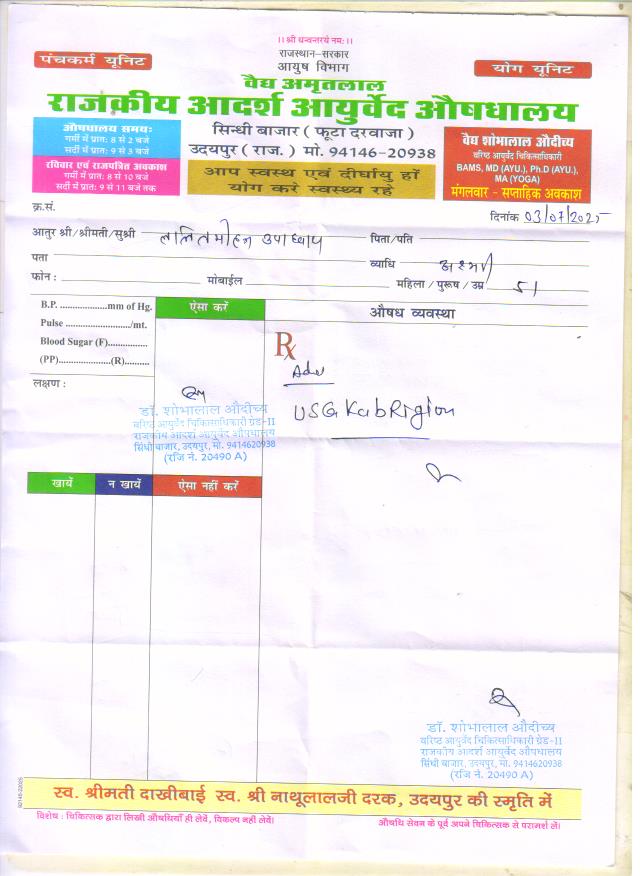 ।। श्री धन्वन्तरये नमः ।।
राजस्थान-सरकार
आयुष विभाग
पंचकर्म यूनिट
योग यूनिट
वैद्य अमृतलाल
राजकीय आदर्श आयुर्वेद औषधालय
सिन्धी बाजार ( फूटा दरवाजा )
उदयपुर ( राज. ) मो. 94146-20938
औषधालय समयः
गर्मी में प्रात: 8 से 2 बजे
सर्दी में प्रात: 9 से 3 बजे
रविवार एवं राजपत्रित अवकाश
गर्मी में प्रात: 8 से 10 बजे
सर्दी में प्रात: 9 से 11 बजे तक
आप स्वस्थ एवं दीर्घायु हों
योग करे स्वस्थ्य रहे
वैद्य शोभालाल औदीच्य
वरिष्ठ आयुर्वेद चिकित्साधिकारी
BAMS, MD (AYU.), Ph.D (AYU.),
MA (YOGA)
मंगलवार - सप्ताहिक अवकाश
क्र.सं.
दिनांक 03/07/2025
आतुर श्री/श्रीमती/सुश्री ललितमोहन उपाध्याय पिता/पति
पता व्याधि
फोन : मोबाईल महिला / पुरूष / उम्र 51
B.P. ....................mm of Hg.
Pulse ........................../mt.
Blood Sugar (F)................
(PP).....................(R)..........
लक्षण :
ऐसा करें
औषध व्यवस्था
Rx
Adv
USG KubRigion
डॉ. शोभालाल औदीच्य
वरिष्ठ आयुर्वेद चिकित्साधिकारी ग्रेड-II
राजकीय आदर्श आयुर्वेद औषधालय
सिंधी बाजार, उदयपुर, मो. 9414620938
(रजि नं. 20490 A)
खायें
न खायें
ऐसा नहीं करें
डॉ. शोभालाल औदीच्य
वरिष्ठ आयुर्वेद चिकित्साधिकारी ग्रेड-II
राजकीय आदर्श आयुर्वेद औषधालय
सिंधी बाजार, उदयपुर, मो. 9414620938
(रजि नं. 20490 A)
स्व. श्रीमती दाखीबाई स्व. श्री नाथूलालजी दरक, उदयपुर की स्मृति में
विशेष : चिकित्सक द्वारा लिखी औषधियाँ ही लेवें, विकल्प नहीं लेवें।
औषधि सेवन के पूर्व अपने चिकित्सक से परामर्श लें।